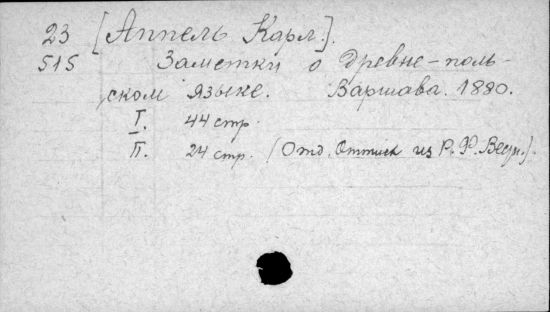 23 [Аппель Карл.].
515 Заметки о древне-поль-
ском языке. Варшава. 1880.
I. 44 стр.
II. 24 стр. (Отд. Оттиск из Р. Ф. Вестн.).